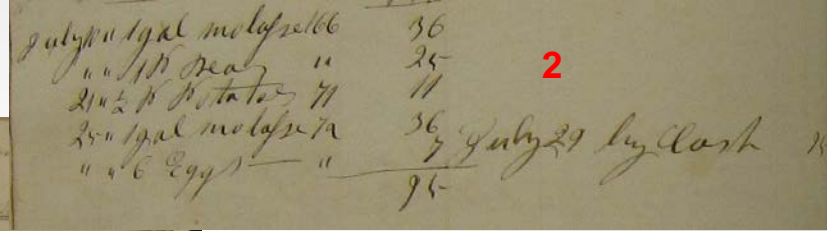 July 10 " 1 gal molasse 166 36
" " 1 P Peas " 25
2
21 " ½ P Potatoes 71 11
25 " 1 gal molasse 72 36
" " 6 Eggs — " 7 July 29 by Cash
95